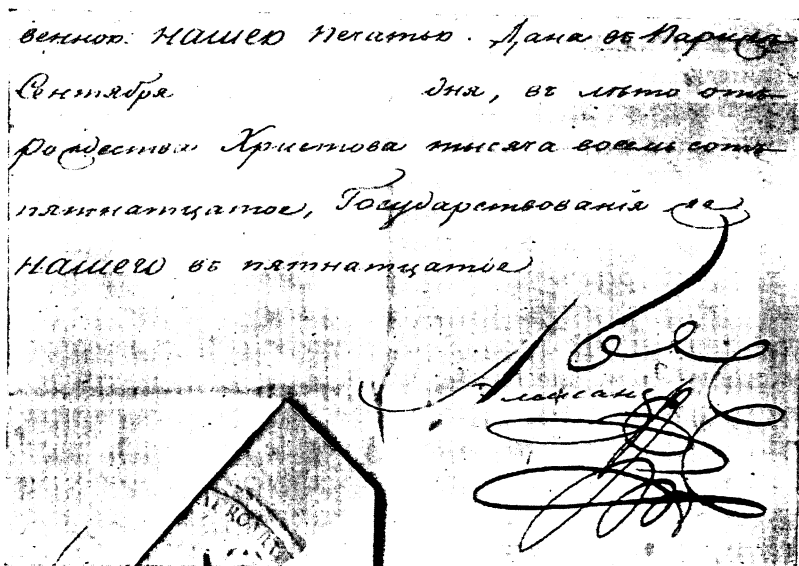 венною НАШЕЮ Печатью. Дана въ Парижѣ
Сентября дня, въ лѣто отъ
рождества Христова тысяча восемь сотъ
пятнатцатое, Государствованія же
НАШЕГО въ пятнатцатое
Александръ